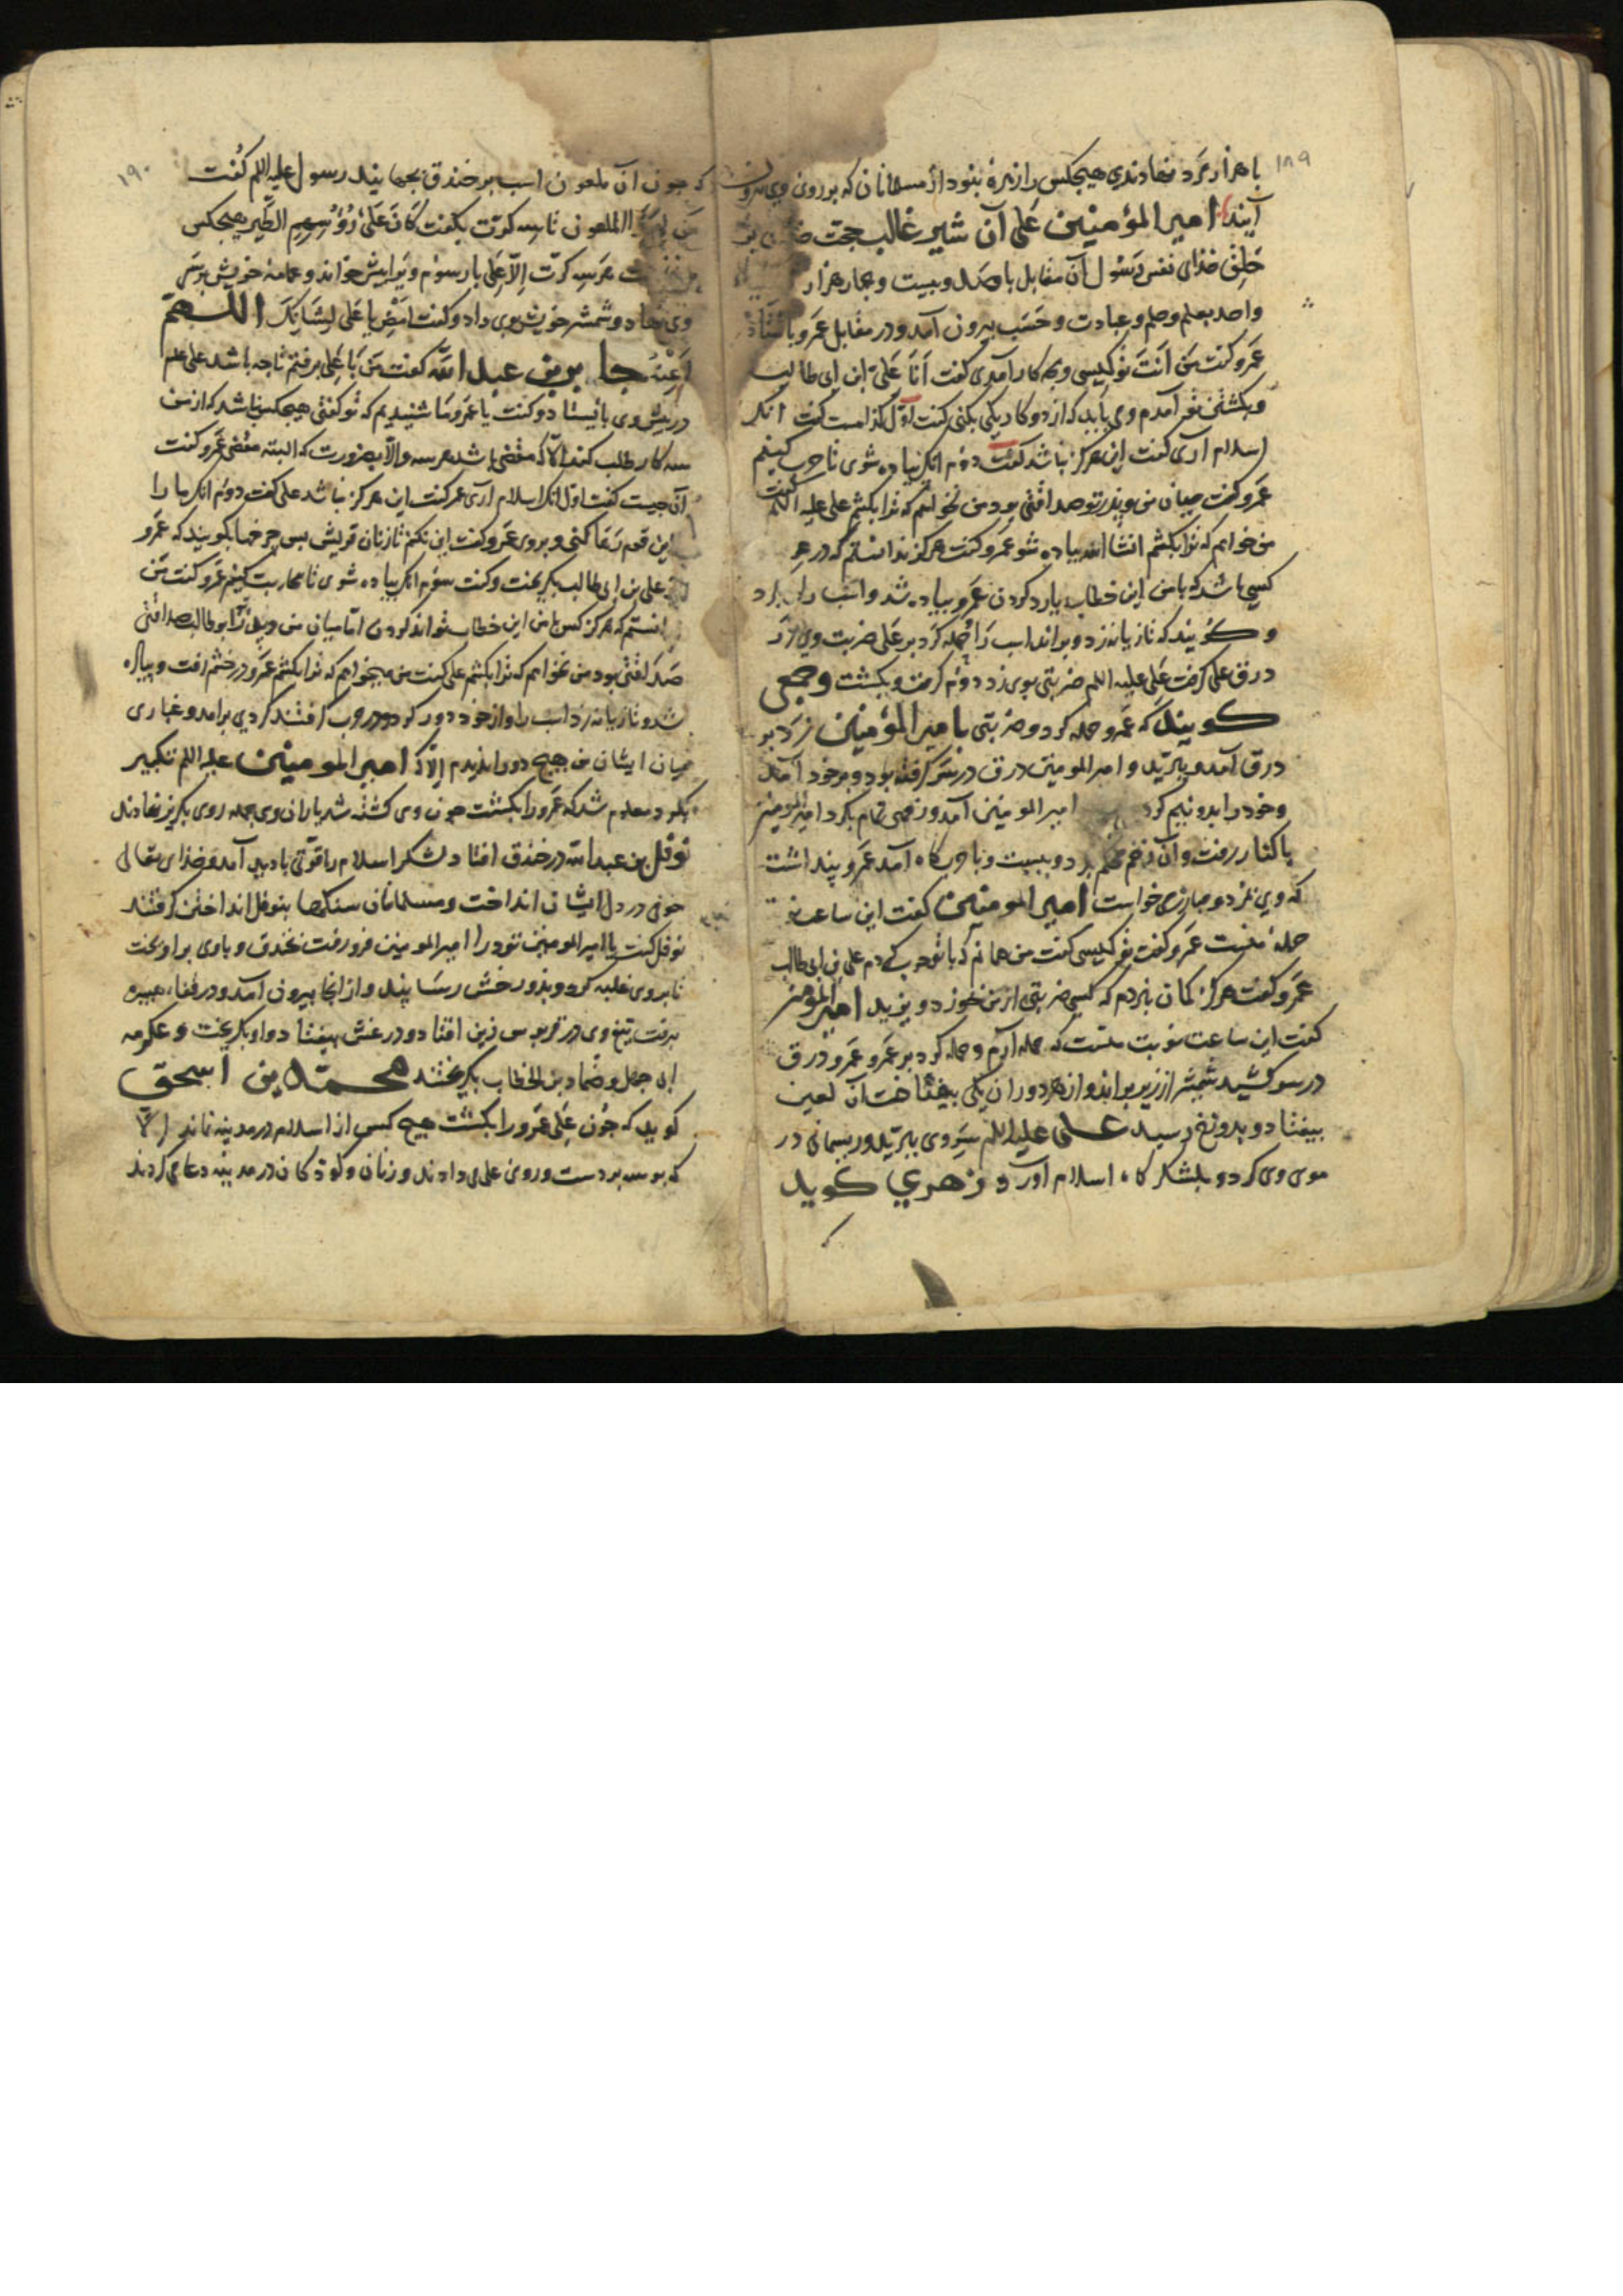 ۱۸۹
با هزار مرد نهادندی هیچکس را زهره نبود از مسلمانان که بر روی وی بیرون
آیند امیر المؤمنین علی آن شیر غالب حجت
خلق خذای نفس رسول آن مقابل با صد و بیست و چهار هزار
واحد بعلم وحلم وعبادت وحسب بیرون آمد ودر مقابل عمرو باستاد
عمرو کفت من انت تو کیستی وبچه کار آمدی کفت انا علی بن ابی طالب
وبکشتن تو آمدم ومی باید که از دو کار یکی بکنی کفت اول کدامست کفت آنک
اسلام آری کفت این هرکز نباشد کفت دوم آنک پیاده شوی تا حرب کنیم
عمرو کفت میان من وپذر تو صداقتی بود من نخواهم که ترا بکشم علی علیه السلم کفت
من خواهم که ترا بکشم انشا الله پیاده شو عمرو کفت هرکز ندانستم که در عرب
کسی باشد که با من این خطاب یارد کردن عمرو پیاده شد واسب را
وکویند که تازیانه زد وبراند اسب را حمله کرد بر علی ضربت وی را
درق علی کرفت علی علیه السلم ضربتی بوی زد دوم کرفت وبکشت وجمعی
کویند که عمرو حمله کرد وضربتی با میر المؤمنین زد بر
درق آمد وببرید وامیر المومنین درق در سر کرفته بود وبر خود آمد
وخود را بدو نیم کرد امیر المومنین آمد وزخمی تمام بکرد امیر المومنین
با کنار رفت وآن زخم محکم بر دوبست وبا حربکاه آمد عمرو پنداشت
که وی بمرد ومبارزی خواست امیر المومنین کفت این ساعت
حمله منست عمرو کفت تو کیستی کفت من همانم که با تو حرب کردم علی بن ابی طالب
عمرو کفت هرکز کمان نبردم که کسی ضربتی از من خوزد وبزید امیر المومنین
کفت این ساعت نوبت منست که حمله آرم وحمله کرد بر عمرو عمرو درق
در سر کشید شمشیر از زیر براند واز هر دو ران یکی بینداخت آن لعین
بیفتاد وبدوزخ رسید علی علیه السلم سر وی ببرید وریسمانی در
موی وی کرد وبلشکر کاه اسلام آورد زهری کوید
۱۹۰
که چون آن ملعون اسب بر خندق بجهانید رسول علیه السلم کفت
من الملعون تا سه کرت بکفت کان علی رؤسهم الطیر هیچکس
هر سه کرت الا علی بار سوم ویرا پیش خواند وعمامه خویش بر سر
وی نهاد وشمشیر خویش بوی داد وکفت امض یا علی لشانک اللهم
اعنه جابر بن عبد الله کفت من با علی برفتم تا چه باشد علی علم
در پیش وی بایستاد وکفت یا عمرو ما شنیدیم که تو کفتی هیچکس نباشد که از من
سه کار طلب کند الا که مقضی باشد هر سه والا بضرورت که البته مقضی عمرو کفت
آن چیست کفت اول آنک اسلام آری عمر کفت این هرکز نباشد علی کفت دوم آنک ما را
این قوم رها کنی وبروی عمرو کفت این نکنم تا زنان قریش بس چرخها بکویند که عمرو
از علی بن ابی طالب بکریخت وکفت سوم آنک پیاده شوی تا محاربت کنیم عمرو کفت من
دانستم که هرکز کس با من این خطاب تواند کردن اما میان من وپدر ترا بوطالب صداقتی
صد لقتی بود من نخواهم که ترا بکشم علی کفت من میخواهم که ترا بکشم عمرو در خشم رفت وپیاده
شد وتازیانه زد اسب را واز خود دور کرد ودر حرب افتند کردی برآمد وغباری
میان ایشان من هیچ دو را ندیدم الا که امیر المومنین علیه السلم تکبیر
بکرد معلوم شد که عمرو را بکشت چون وی کشته شد یاران وی جمله روی بکریز نهادند
نوفل بن عبد الله در خندق افتاد لشکر اسلام را قوتی با دید آمد وخذای تعالی
خوفی در دل ایشان انداخت ومسلمانان سنکها بنوفل انداختن کرفتند
نوفل کفت یا امیر المومنین تو در آ امیر المومنین فرو رفت بخندق وبا وی برآویخت
تا بر وی غلبه کرد وبذوزخش رسانید واز آنجا بیرون آمد ودر قفاء هبیره
برفت تیغ وی در قربوس زین افتاد ودرعش بیفتاد واو بکریخت وعکرمه
ابی جهل وضرار بن الخطاب بکریختند محمد بن اسحق
کوید که چون علی عمرو را بکشت هیچ کس از اسلام در مدینه نماند الا
که بوسه بر دست وروی علی می دادند وزنان وکوذکان در مدینه دعا می کردند